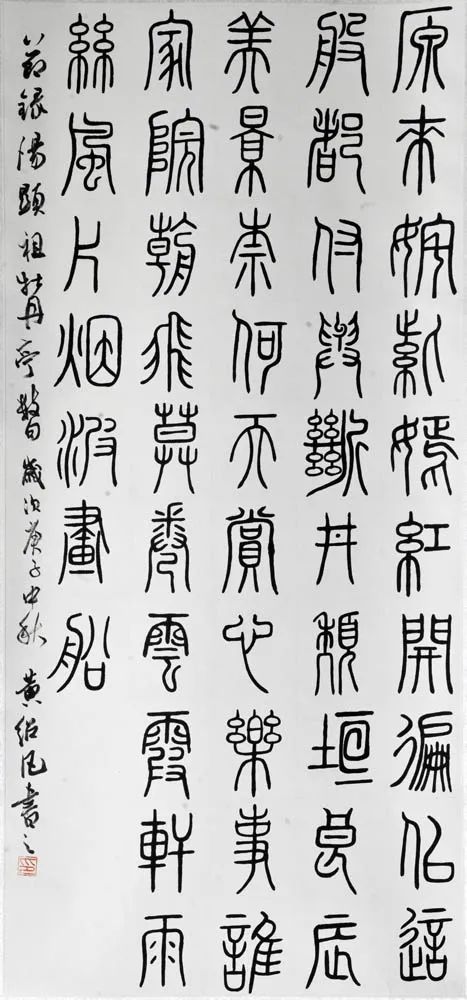 原來姹紫嫣紅開徧佀這
般都付與斷井頹垣良辰
美景奈何天賞心樂事誰
家院朝飛莫卷雲霞軒雨
絲風片烟波畫船
節錄湯顯祖牡丹亭 歲次庚子中秋 黃紹書之